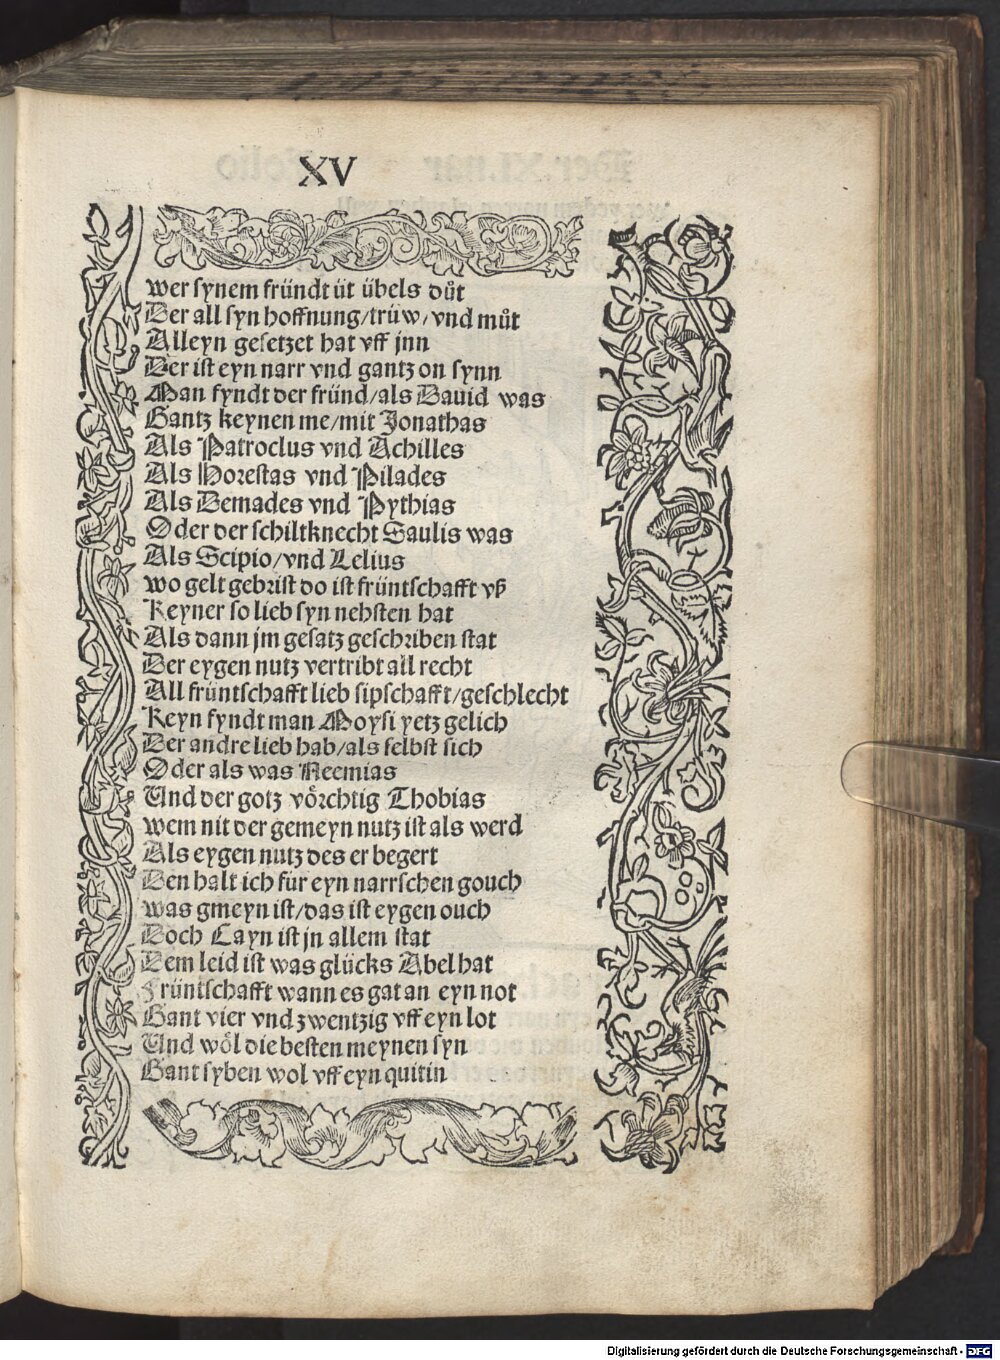 XV
wer synem fründt üt übels důt
Der all syn hoffnung/trüw/vnd můt
Alleyn gesetzet hat vff jnn
Der ist eyn narr vnd gantz on synn
Man fyndt der fründ/als Dauid was
Gantz keynen me/mit Jonathas
Als Patroclus vnd Achilles
Als Horestas vnd Pilades
Als Demades vnd Pythias
Oder der schiltknecht Saulis was
Als Scipio/vnd Lelius
wo gelt gebrist do ist früntschafft vß
Keyner so lieb syn nehsten hat
Als dann jm gesatz geschriben stat
Der eygen nutz vertribt all recht
All früntschafft lieb sipschafft/geschlecht
Keyn fyndt man Moysi yetz gelich
Der andre lieb hab/als selbst sich
Oder als was Neemias
Und der gotz vörchtig Thobias
wem nit der gemeyn nutz ist als werd
Als eygen nutz des er begert
Den halt ich für eyn narrschen gouch
was gmeyn ist/das ist eygen ouch
Doch Cayn ist jn allem stat
Dem leid ist was glücks Abel hat
Früntschafft wann es gat an eyn not
Gant vier vnd zwentzig vff eyn lot
Und wöl die besten meynen syn
Gant syben wol vff eyn quitin
Digitalisierung gefördert durch die Deutsche Forschungsgemeinschaft - DFG